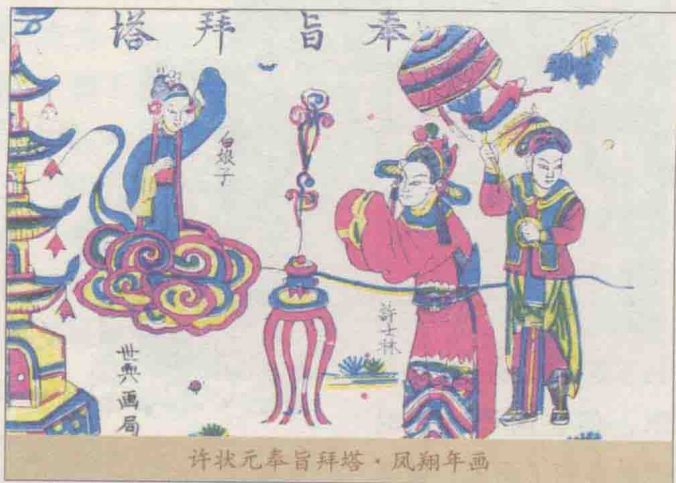 奉旨拜塔
白娘子
許士林
世興画局
许状元奉旨拜塔·凤翔年画